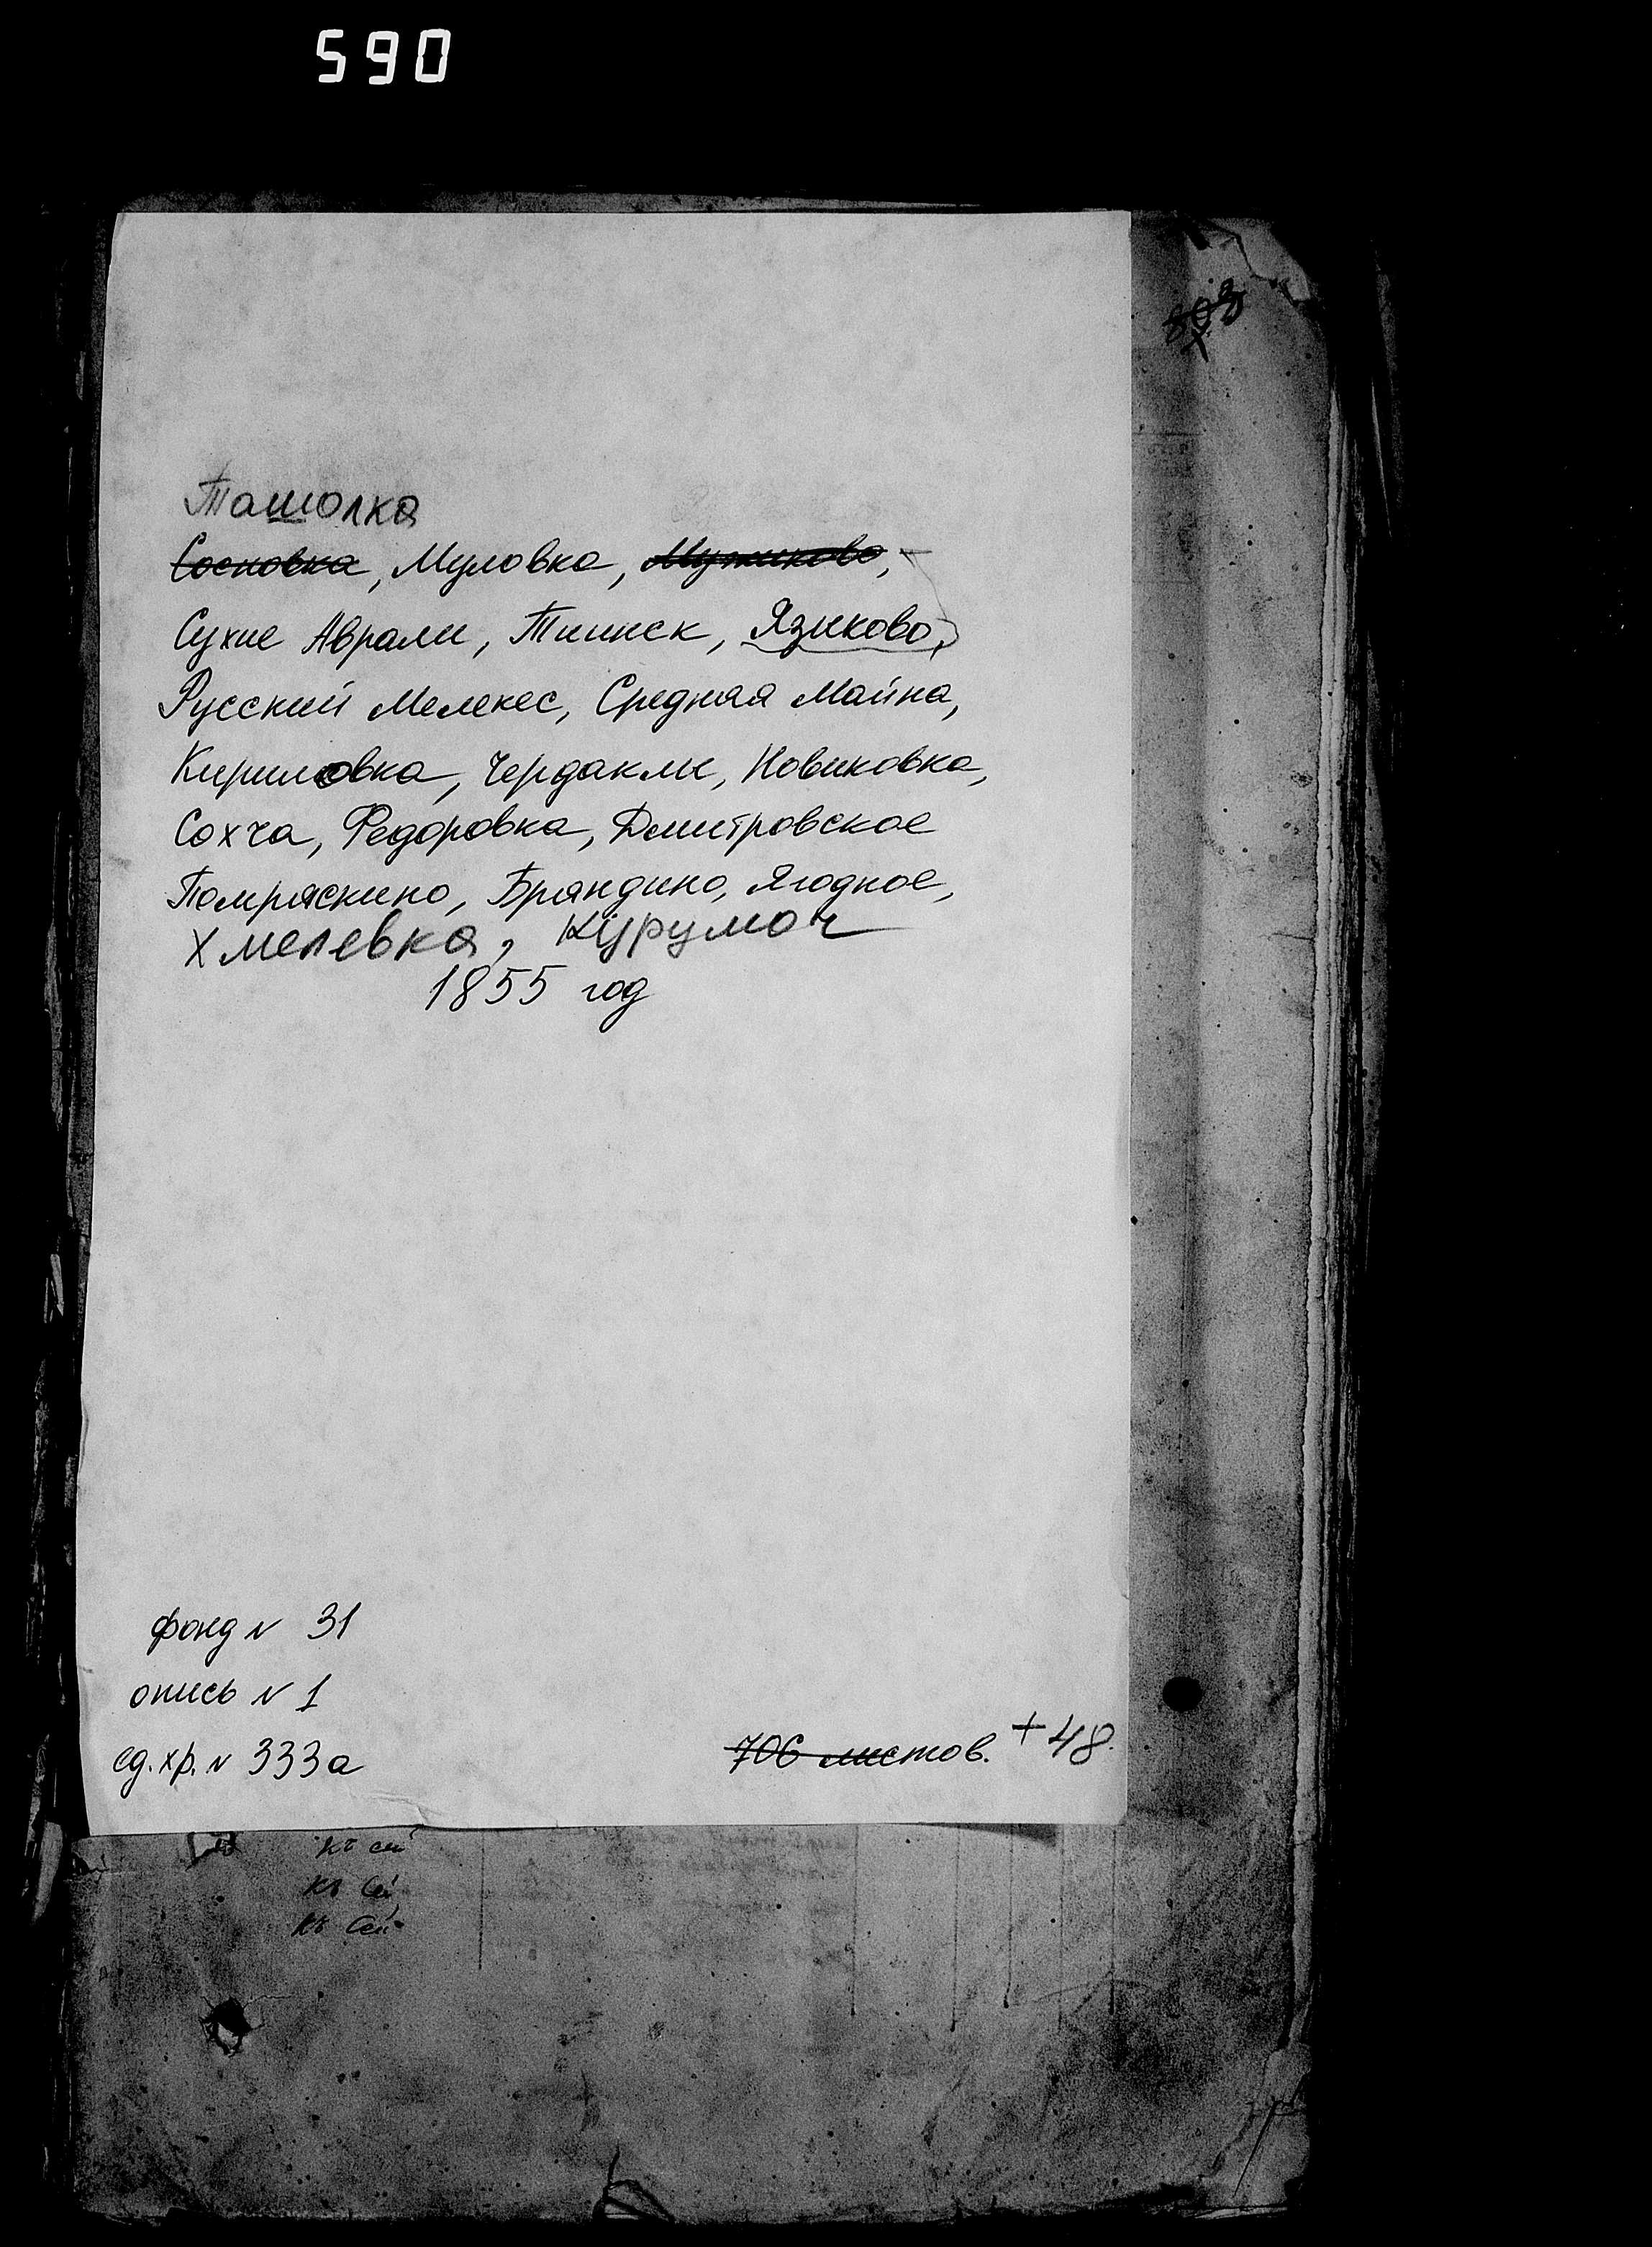 590
Ташолка
Сосновка, Муловка, Мужиково,
Сухие Аврали, Тиинск, Языково,
Русский Мелекес, Средняя Майна,
Кириловка, Чердаклы, Новиковка,
Сохча, Федоровка, Дмитровское
Помряскино, Бряндино, Ягодное,
Хмелевка, Курумоч
1855 год
фонд № 31
опись № 1
ед. хр. № 333а
706 листов. + 48.